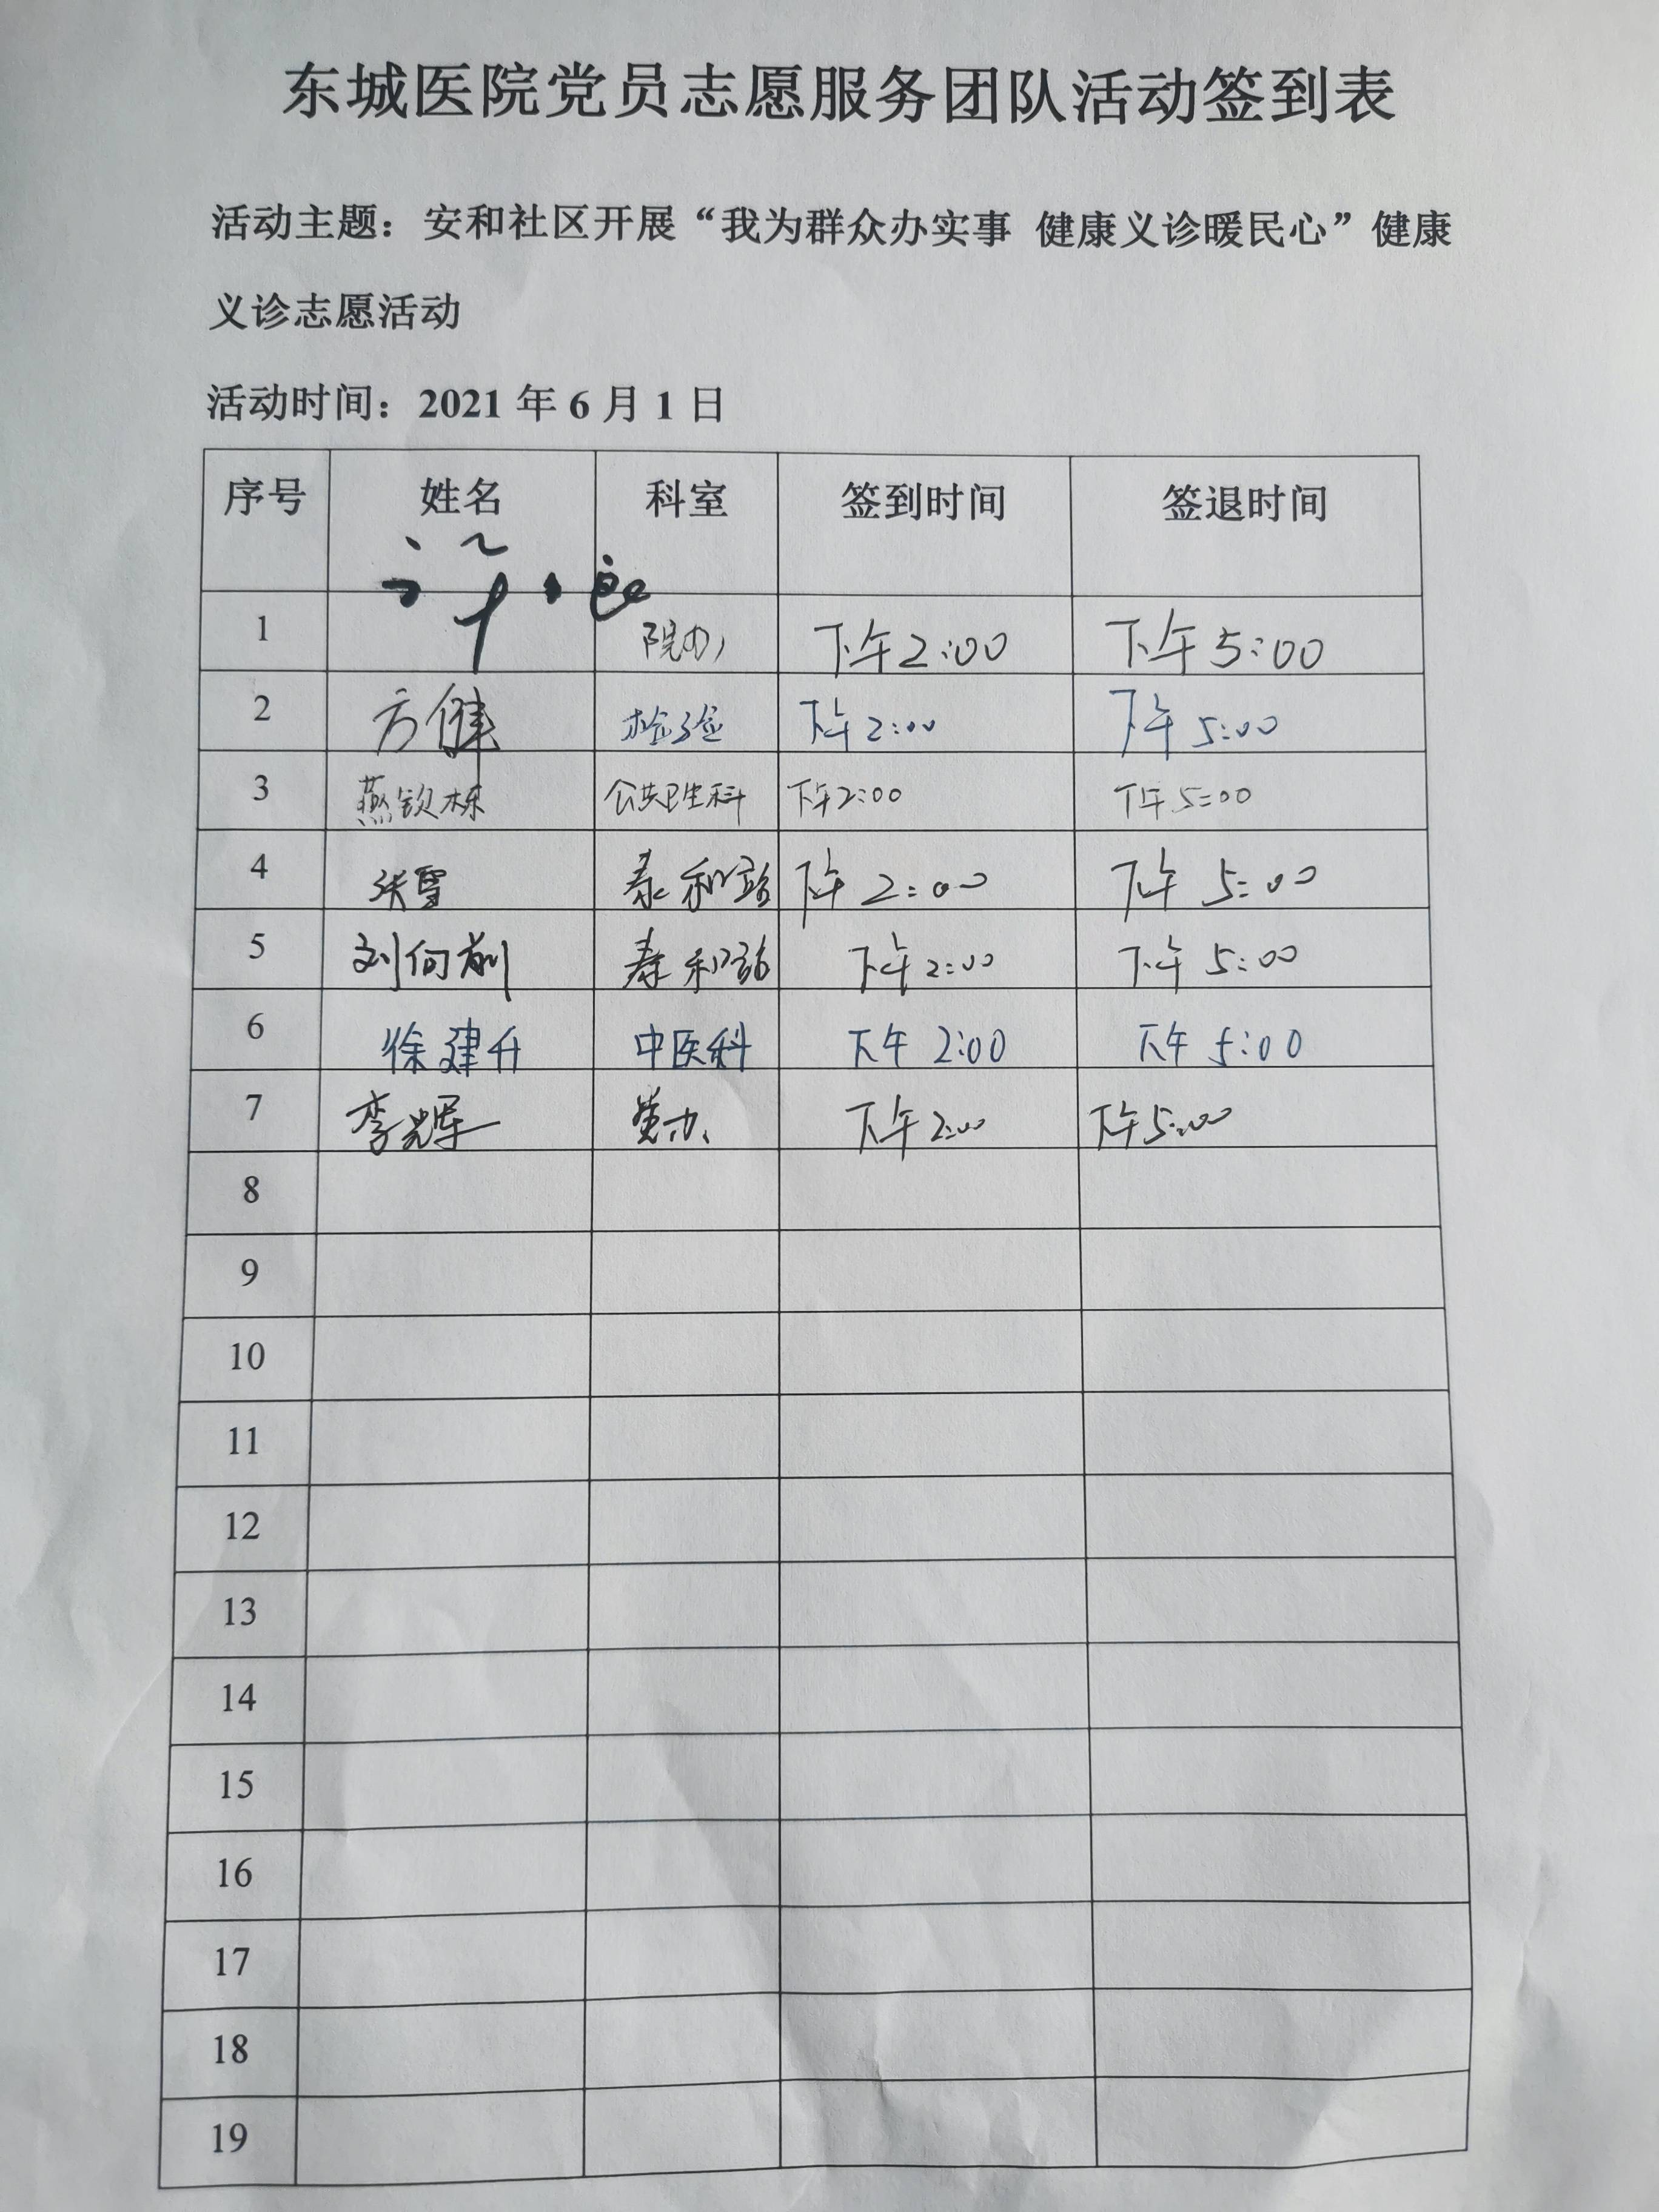 东城医院党员志愿服务团队活动签到表
活动主题：安和社区开展“我为群众办实事 健康义诊暖民心”健康
义诊志愿活动
活动时间：2021 年 6 月 1 日
序号 姓名 科室 签到时间 签退时间
1 院办 下午2:00 下午5:00
2 方健 检验 下午2:00 下午5:00
3 燕钦栋 公共卫生科 下午2:00 下午5:00
4 张雪 泰和站 下午2:00 下午5:00
5 刘向前 泰和站 下午2:00 下午5:00
6 徐建升 中医科 下午2:00 下午5:00
7 李辉 党办 下午2:00 下午5:00
8
9
10
11
12
13
14
15
16
17
18
19